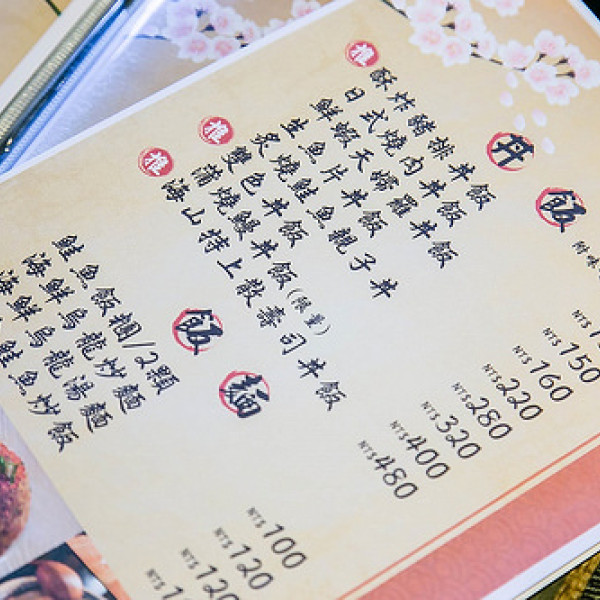 丼飯
附味
推 酥炸豬排丼飯
日式燒肉丼飯 NT$150
鮮蝦天婦羅丼飯 NT$160
生魚片丼飯 NT$220
炙燒鮭魚親子丼 NT$280
推 雙色丼飯 NT$320
蒲燒鰻丼飯(限量) NT$400
推 海山特上散壽司丼飯 NT$480
飯麵
鮭魚飯糰/2顆 NT$100
海鮮烏龍炒麵 NT$120
海鮮烏龍湯麵 NT$120
鮭魚炒飯 NT$